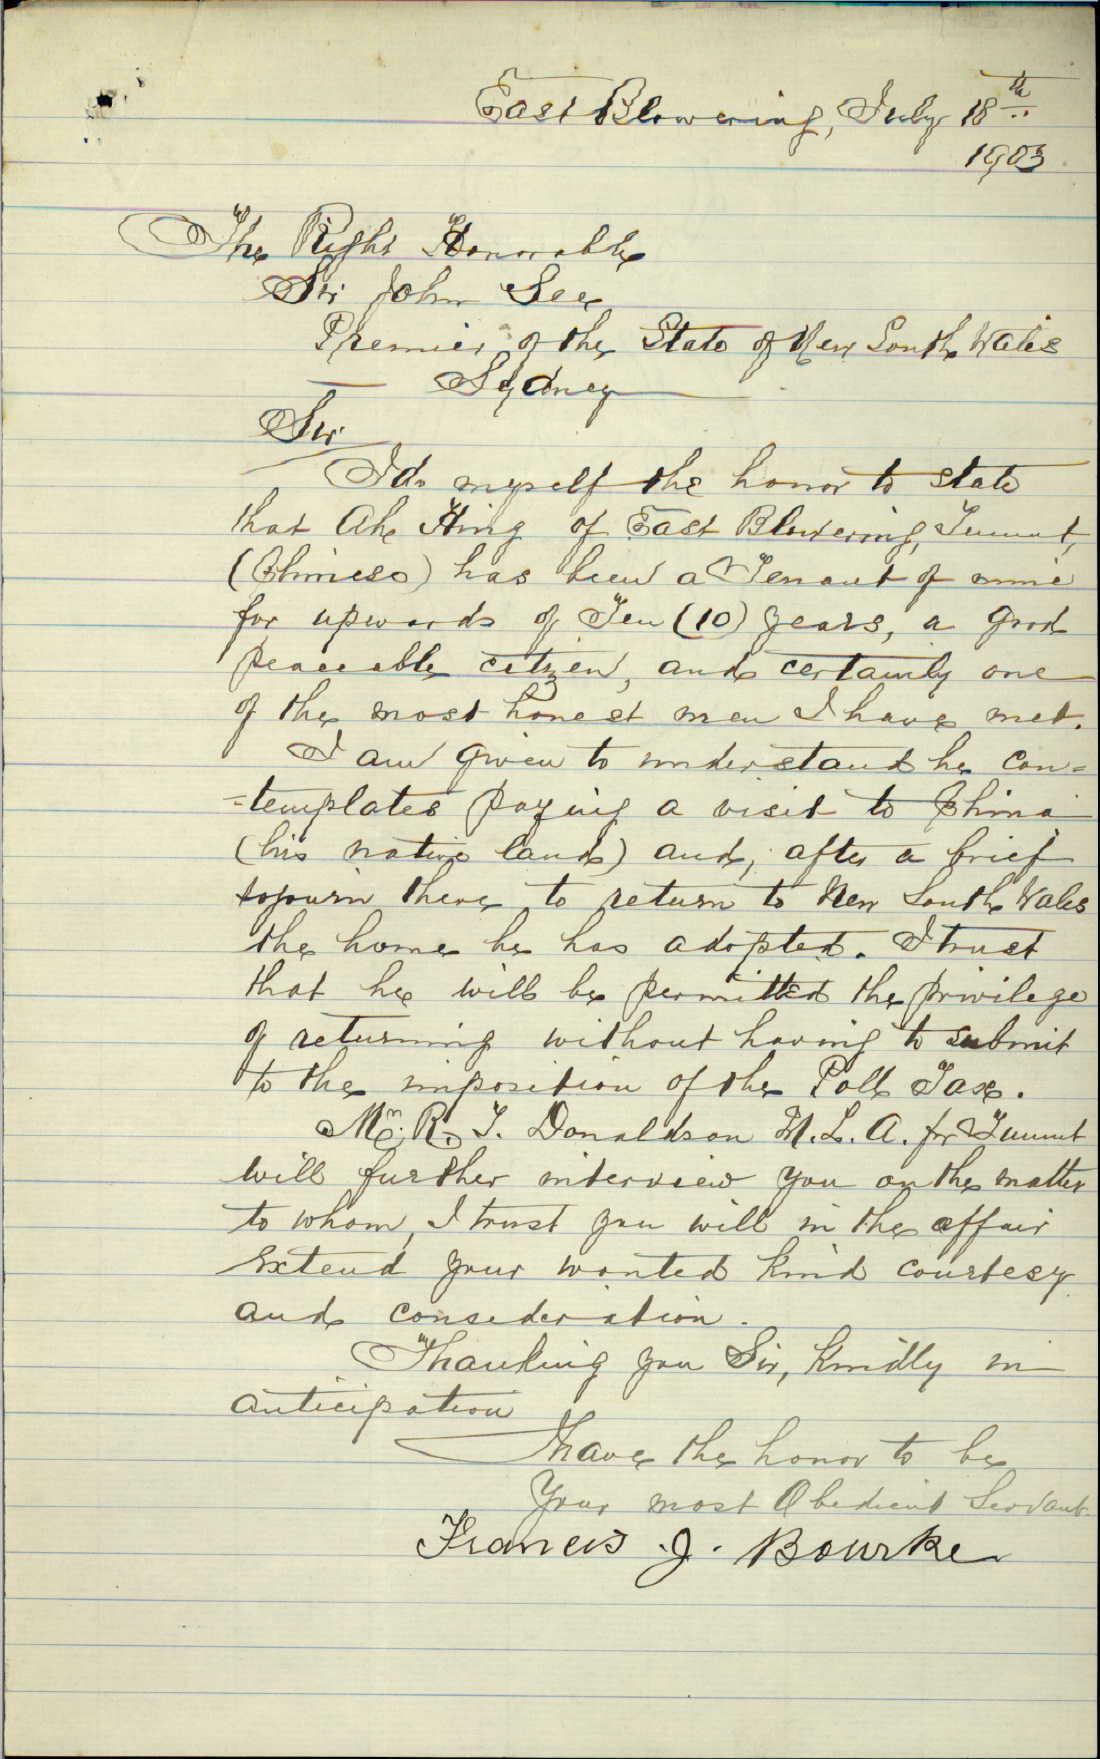 East Blowering, July 18th
1903
The Right Honorable
Sir John See
Premier of the State of New South Wales
Sydney
Sir
I do myself the honor to state
that Ah Hing of East Blowering, Tumut,
(Chinese) has been a Tenant of mine
for upwards of Ten (10) years, a good
peaceable citizen, and certainly one
of the most honest men I have met.
I am given to understand he con=
=templates paying a visit to China
(his native land) and, after a brief
sojourn there, to return to New South Wales
the home he has adopted. I trust
that he will be permitted the privilege
of returning without having to submit
to the imposition of the Poll Tax.
Mr. R. T. Donaldson M.L.A. for Tumut
will further interview you on the matter
to whom, I trust you will in the affair
extend your wonted kind courtesy
and consideration.
Thanking you Sir, kindly in
anticipation
I have the honor to be
Your most Obedient Servant
Francis J. Bourke